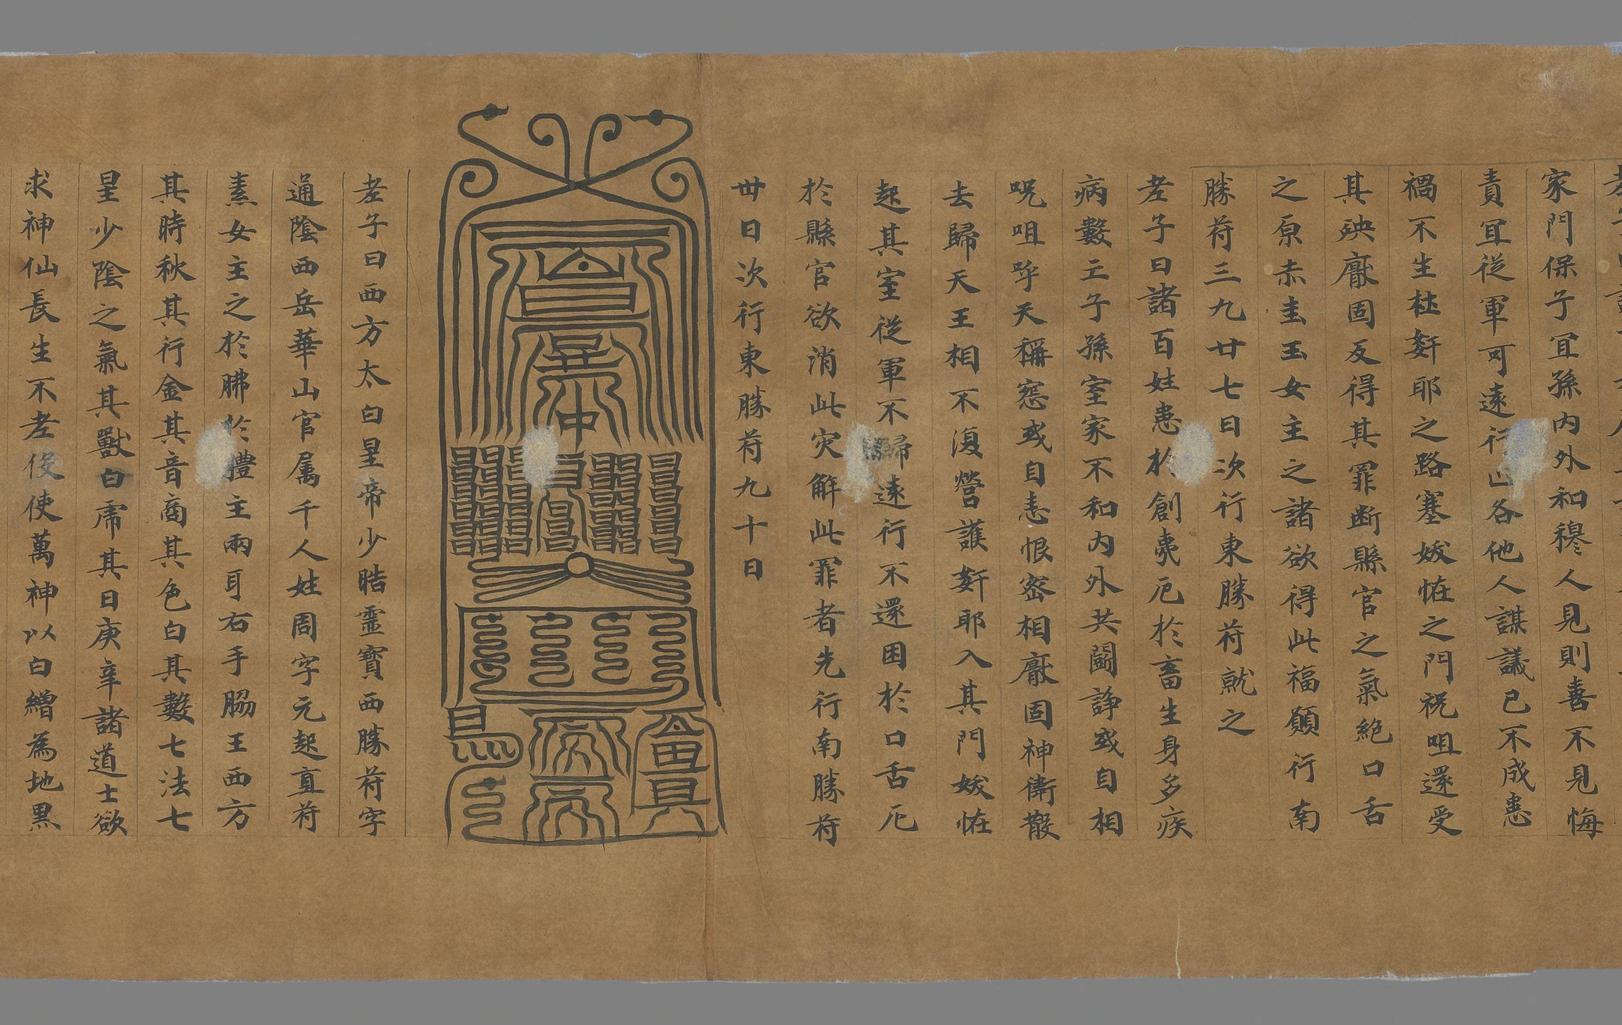 家門保子宜孫内外和穆人見則喜不見悔
責宜従軍可遠行各他人謀議已不成患
禍不生杜姧耶之路塞妭恠之門祝咀還受
其殃厭固反得其罪断縣官之氣絶口舌
之原赤圭玉女主之諸欲得此福願行南
勝苻三九廿七日次行東勝苻就之
老子曰諸百姓患於創痍厄於畜生身多疾
病數亡子孫室家不和内外共鬪諍或自相
呪咀呼天稱怨或自恚恨密相厭固神衛散
去歸天王相不復營護姧耶入其門妭恠
起其室從軍不歸遠行不還困於口舌厄
於縣官欲消此灾解此罪者先行南勝苻
卅日次行東勝苻九十日
老子曰西方太白星帝少晧靈寳西勝苻字
通陰西岳華山官属千人姓周字元起直苻
素女主之於胇於體主兩耳右手脇王西方
其時秋其行金其音商其色白其數七法七
星少陰之氣其獸白虎其日庚辛諸道士欲
求神仙長生不老伇使萬神以白繒為地黒